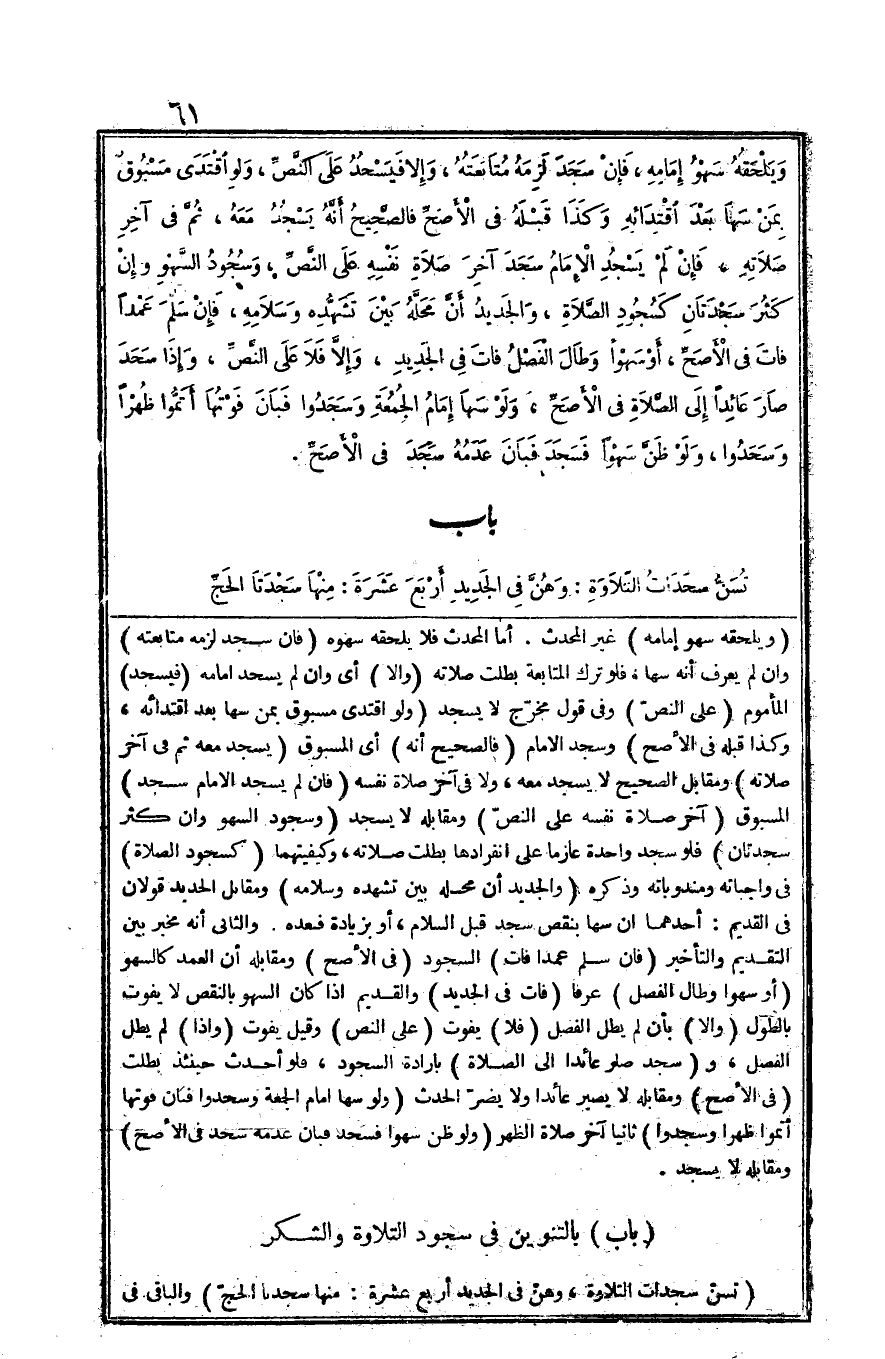 ٦١
وَيَلْحَقُهُ سَهْوُ إِمَامِهِ ، فَإِنْ سَجَدَ لَزِمَهُ مُتَابَعَتُهُ ، وَإِلا فَيَسْجُدُ عَلَى النَّصِّ ، وَلَو اقْتَدَى مَسْبُوقٌ
بِمَنْ سَهَا بَعْدَ اقْتِدَائِهِ وَكَذَا قَبْلَهُ فى الْأَصَحِّ فالصَّحِيحُ أَنَّهُ يَسْجُدُ مَعَهُ ، ثُمَّ فى آخِرِ
صَلَاتِهِ ، فَإِنْ لَمْ يَسْجُدِ الْإِمَامُ سَجَدَ آخِرَ صَلَاةِ نَفْسِهِ عَلَى النَّصِّ ، وَسُجُودُ السَّهْوِ وإِنْ
كَثُرَ سَجْدَتَانِ كَسُجُودِ الصَّلَاةِ ، وَالجَدِيدُ أَنَّ مَحَلَّهُ بَيْنَ تَشَهُّدِهِ وَسَلَامِهِ ، فَإِنْ سَلَّمَ عَمْداً
فاتَ فى الْأَصَحِّ ، أَوْ سَهْواً وَطَالَ الْفَصْلُ فاتَ فِى الجَدِيدِ ، وَإِلَّا فَلَا عَلَى النَّصِّ ، وَإِذَا سَجَدَ
صارَ عَائِداً إِلَى الصَّلَاةِ فى الْأَصَحِّ ، وَلَوْ سَهَا إِمَامُ الجُمُعَةِ وَسَجَدُوا فَبَانَ فَوْتُهَا أَتَمُّوا ظُهْراً
وَسَجَدُوا ، وَلَوْ ظَنَّ سَهْواً فَسَجَدَ فَبَانَ عَدَمُهُ سَجَدَ فى الْأَصَحِّ .
باب
تُسَنُّ سجَدَاتُ التِّلَاوَةِ : وَهُنَّ فِى الجَدِيدِ أَرْبَعَ عَشْرَةَ : مِنْهَا سَجْدَتَا الحَجِّ
( ويلحقه سهو إمامه ) غير المحدث . أما المحدث فلا يلحقه سهوه ( فان سجد لزمه متابعته )
وان لم يعرف أنه سها ، فلو ترك المتابعة بطلت صلاته ( والا ) أى وان لم يسجد امامه ( فيسجد )
المأموم ( على النصّ ) وفى قول مخرّج لا يسجد ( ولو اقتدى مسبوق بمن سها بعد اقتدائه ،
وكذا قبله فى الأصح ) وسجد الامام ( فالصحيح أنه ) أى المسبوق ( يسجد معه ثم فى آخر
صلاته ) ومقابل الصحيح لا يسجد معه ، ولا فى آخر صلاة نفسه ( فان لم يسجد الامام سجد )
المسبوق ( آخر صلاة نفسه على النصّ ) ومقابله لا يسجد ( وسجود السهو وان كثر
سجدتان ) فلو سجد واحدة عازما على انفرادها بطلت صلاته ، وكيفيتهما ( كسجود الصلاة )
فى واجباته ومندوباته وذكره ( والجديد أن محله بين تشهده وسلامه ) ومقابل الجديد قولان
فى القديم : أحدهما ان سها بنقص سجد قبل السلام ، أو بزيادة فبعده . والثانى أنه مخير بين
التقديم والتأخير ( فان سلم عمدا فات ) السجود ( فى الأصح ) ومقابله أن العمد كالسهو
( أو سهوا وطال الفصل ) عرفا ( فات فى الجديد ) والقديم اذا كان السهو بالنقص لا يفوت
بالطول ( والا ) بأن لم يطل الفصل ( فلا ) يفوت ( على النص ) وقيل يفوت ( واذا ) لم يطل
الفصل ، و ( سجد صار عائدا الى الصلاة ) بارادة السجود ، فلو أحدث حينئذ بطلت
( فى الأصح ) ومقابله لا يصير عائدا ولا يضرّ الحدث ( ولو سها امام الجمعة وسجدوا فبان فوتها
أتموا ظهرا وسجدوا ) ثانيا آخر صلاة الظهر ( ولو ظن سهوا فسجد فبان عدمه سجد فى الأصح )
ومقابله لا يسجد .
( باب ) بالتنوين فى سجود التلاوة والشكر
( تسنّ سجدات التلاوة ، وهنّ فى الجديد أربع عشرة : منها سجدتا الحجّ ) والباقى فى